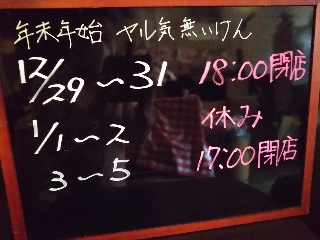 年末年始 ヤル気無いけん
12/29〜31 18:00閉店
1/1〜2 休み
3〜5 17:00閉店